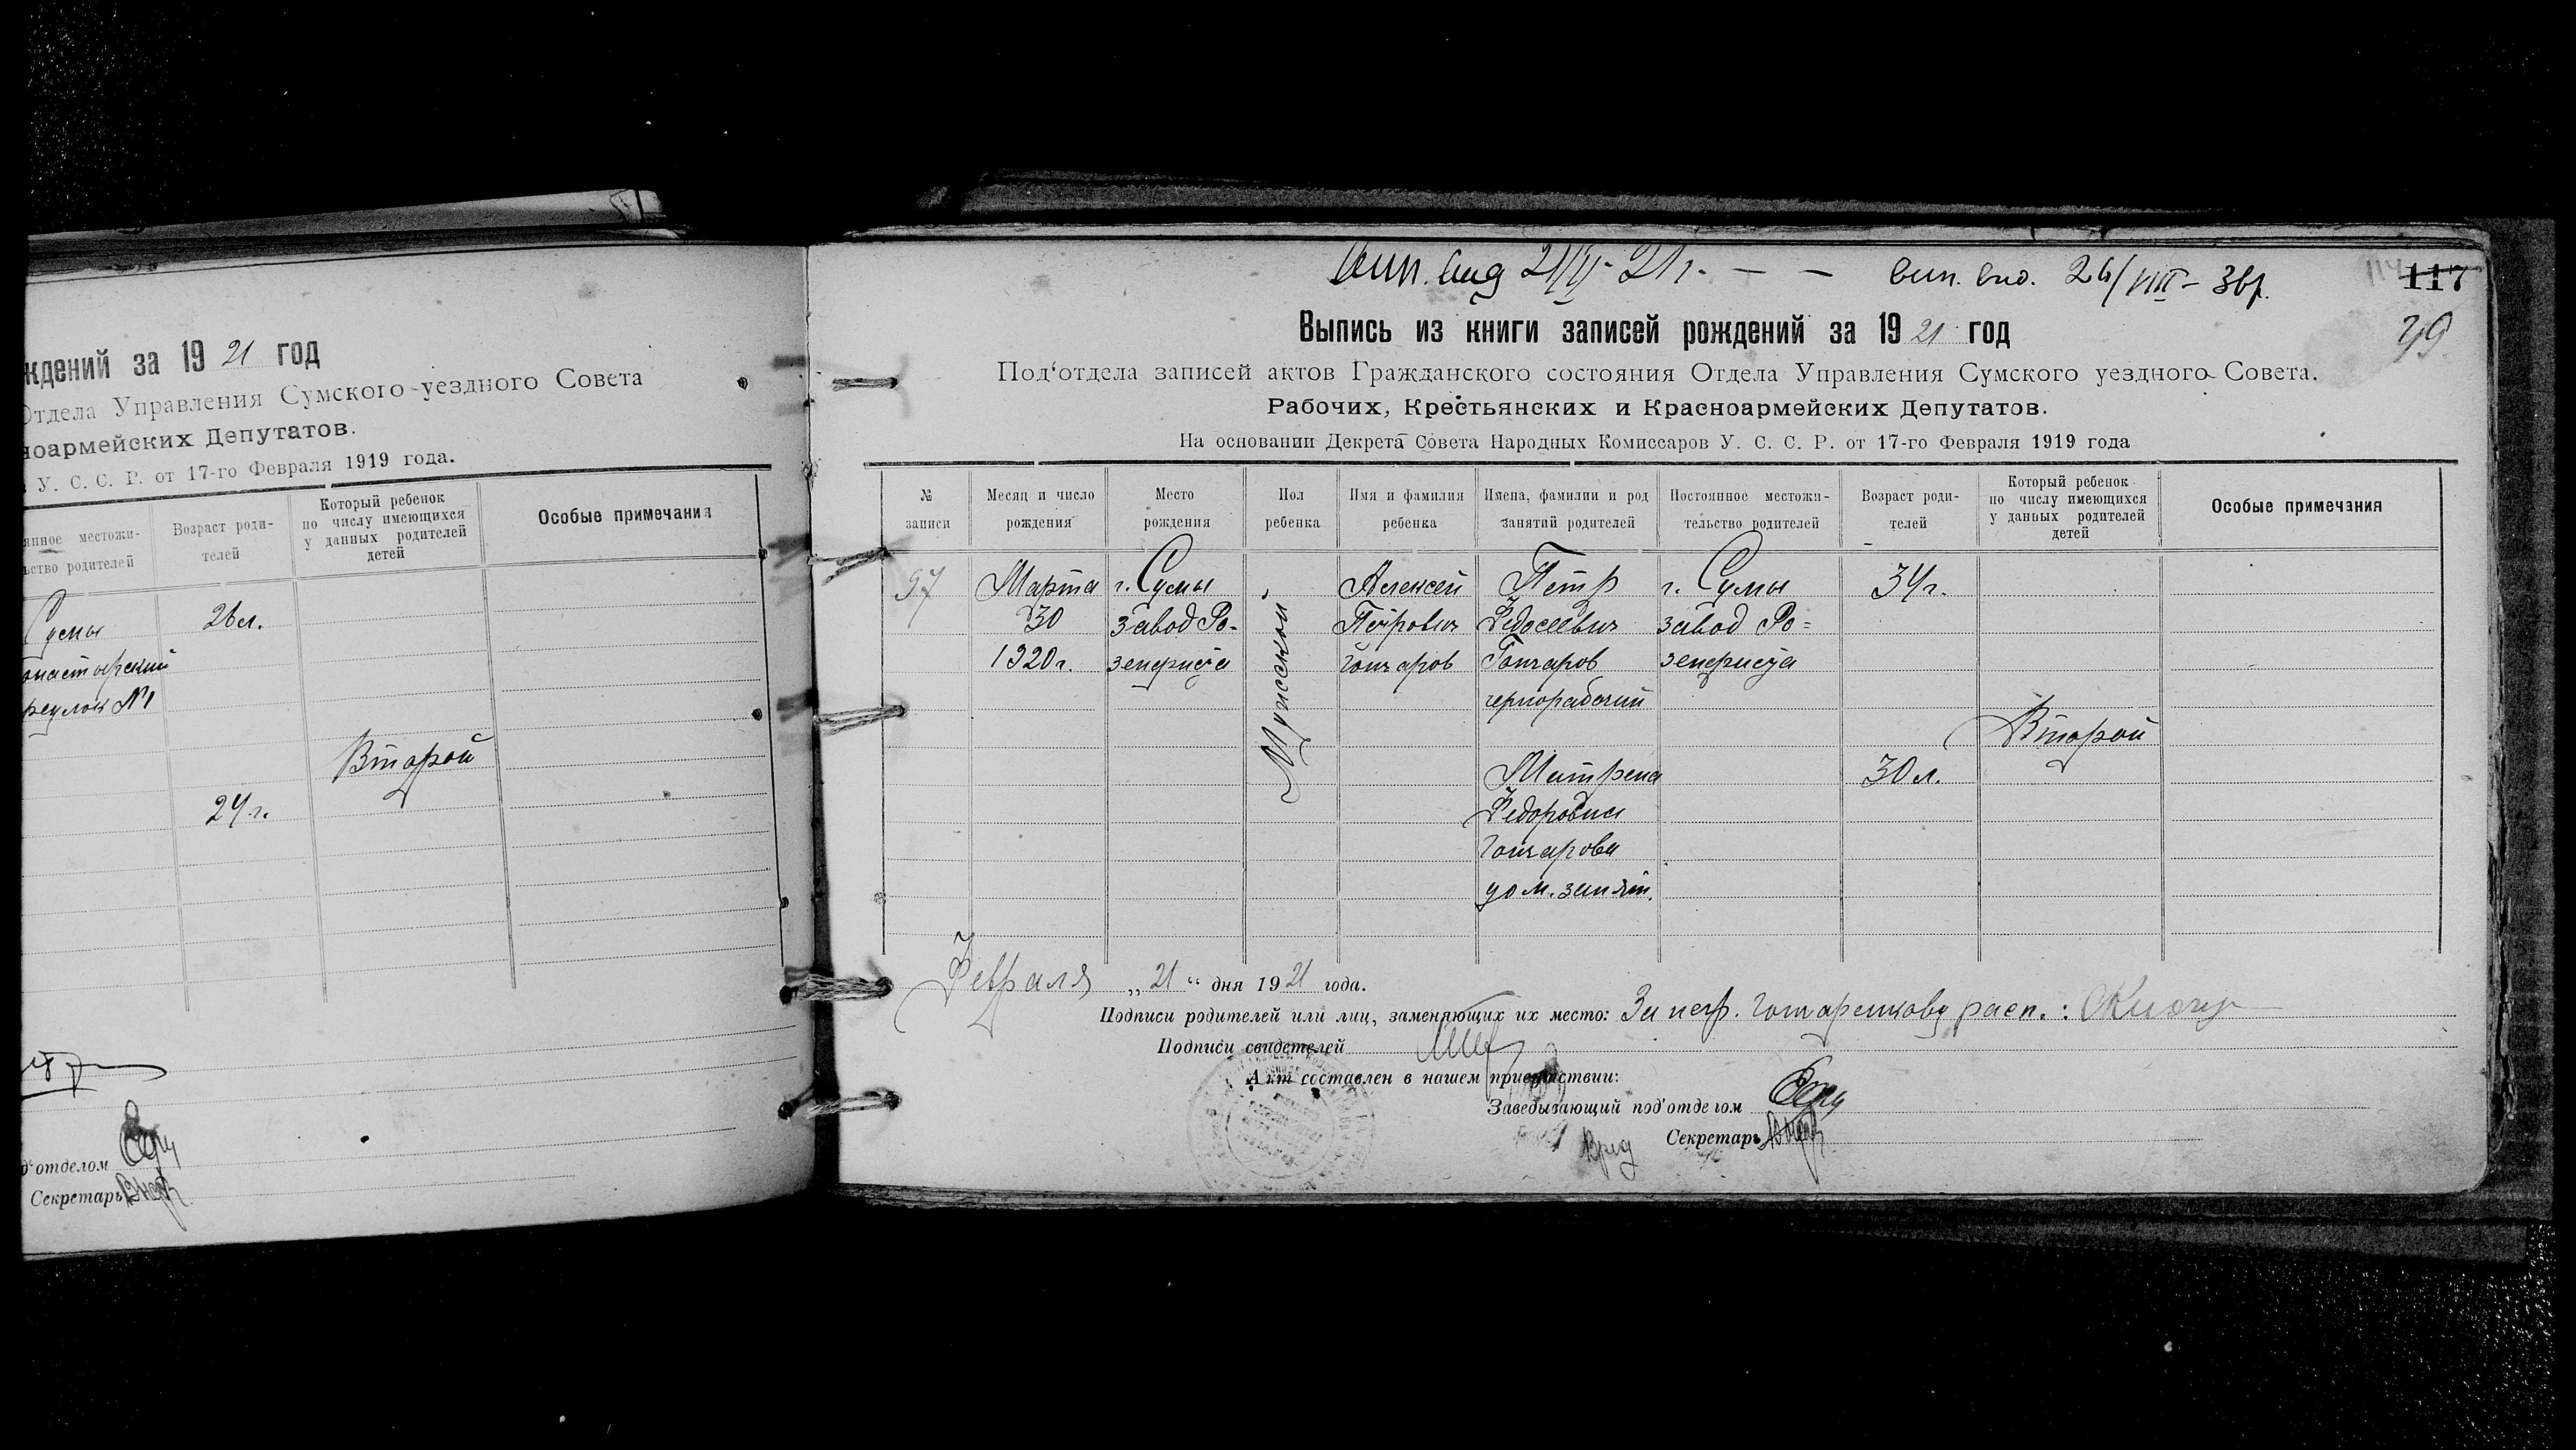 ждений за 1921 год
Отдела Управления Сумского уездного Совета
ноармейских Депутатов.
У. С. С. Р. от 17-го Февраля 1919 года.
янное местожи-
ьство родителей
Возраст роди-
телей
Который ребенок
по числу имеющихся
у данных родителей
детей
Особые примечания
Сумы
26 л.
онастырский
реулок №1
Второй
24 г.
д'отделом
Секретарь
вип. вид 21/VI - 21 г. — —
вип. вид. 26/VIII - 36 р.
117
Выпись из книги записей рождений за 1921 год
Под'отдела записей актов Гражданского состояния Отдела Управления Сумского уездного Совета.
Рабочих, Крестьянских и Красноармейских Депутатов.
На основании Декрета Совета Народных Комиссаров У. С. С. Р. от 17-го Февраля 1919 года
№
записи
Месяц и число
рождения
Место
рождения
Пол
ребенка
Имя и фамилия
ребенка
Имена, фамилии и род
занятий родителей
Постоянное местожи-
тельство родителей
Возраст роди-
телей
Который ребенок
по числу имеющихся
у данных родителей
детей
Особые примечания
97
Марта
30
1920 г.
г. Сумы
завод Ро-
зенфиста
Мужской
Алексей
Петрович
Гончаров
Петр
Федосеевич
Гончаров
чернорабочий
Матрена
Федоровна
Гончарова
дом. занят.
г. Сумы
завод Ро=
зенфиста
34 г.
30 л.
Второй
Февраля „21“ дня 1921 года.
Подписи родителей или лиц, заменяющих их место: За негр. расп.:
Подписи свидетелей
Акт составлен в нашем присутствии:
Заведывающий под'отделом
Врид Секретарь